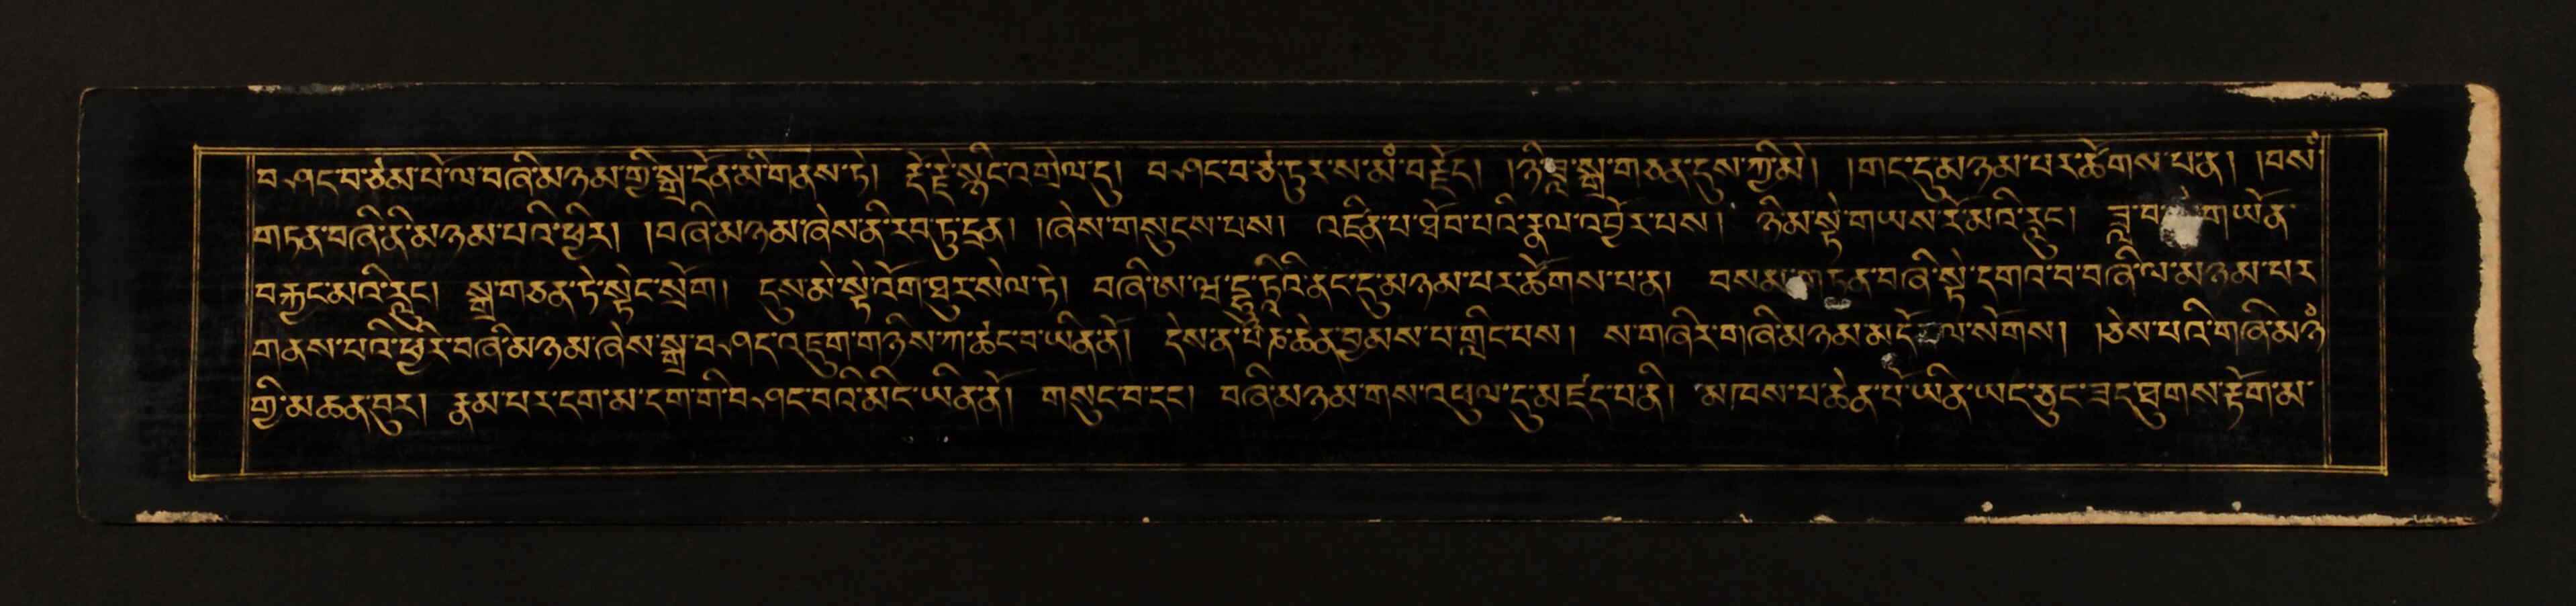 བཤད་བ་ཙམ་པོ་ལ་བཞི་མཉམ་གྱི་སྒྲ་དོན་མི་གནས་ཏེ། རྡོ་རྗེ་སྙིང་འགྲེལ་དུ། བཤད་བ་ཙ་དུར་ས་མཾ་བརྗོད། །ཉི་ཟླ་སྒྲ་གཅན་དུས་ཀྱི་མེ། །གང་དུ་མཉམ་པར་ཚོགས་པ་ན། །བསཾ་
གཏན་བཞི་ནི་མི་ཉམ་པའི་ཕྱིར། །བཞི་མཉམ་ཞེས་ནི་རབ་ཏུ་དྲན། །ཞེས་གསུངས་པས། འཛིན་པ་ཐོབ་པའི་རྣལ་འབྱོར་པས། ཉི་མ་སྟེ་གཡས་རོ་མའི་རླུང། ཟླ་བ་ གཡོན་
བརྐྱང་མའི་རླུང། སྒྲ་གཅན་ཏེ་སྟེང་སྲོག། དུས་མེ་སྟེ་འོག་ཐུར་སེལ་ཏེ། བཞི་ཨ་ཝ་དྷཱུ་ཏིའི་ནང་དུ་མཉམ་པར་ཚོགས་པ་ན། བསམ་གཏན་བཞི་སྟེ་དགའ་བ་བཞི་ལ་མཉམ་པར
གནས་པའི་ཕྱིར་བཞི་མི་ཉམ་ཞེས་སྒྲ་བཤད་འཇུག་གཉིས་ཀ་ཚང་བ་ཡིན་ནོ། དེས་ན་པཾ་ཆེན་བྱམས་པ་གླིང་པས། ས་གཞིར་གཞི་མཉམ་མདོ ལ་སོགས། །ཅེས་པའི་གཞི་མཉཾ
གྱི་མཆན་བུར། རྣམ་པར་དག་མ་དག་གི་བཤད་བའི་མིང་ཡིན་ནོ། གསུང་བ་དང། བཞི་མཉམ་གས་འཕུལ་དུ་མཛད་པ་ནི། མཁས་པ་ཆེན་པོ་ཡིན་ཡང་ཅུང་ཟད་ཐུགས་རྟོག་མ་